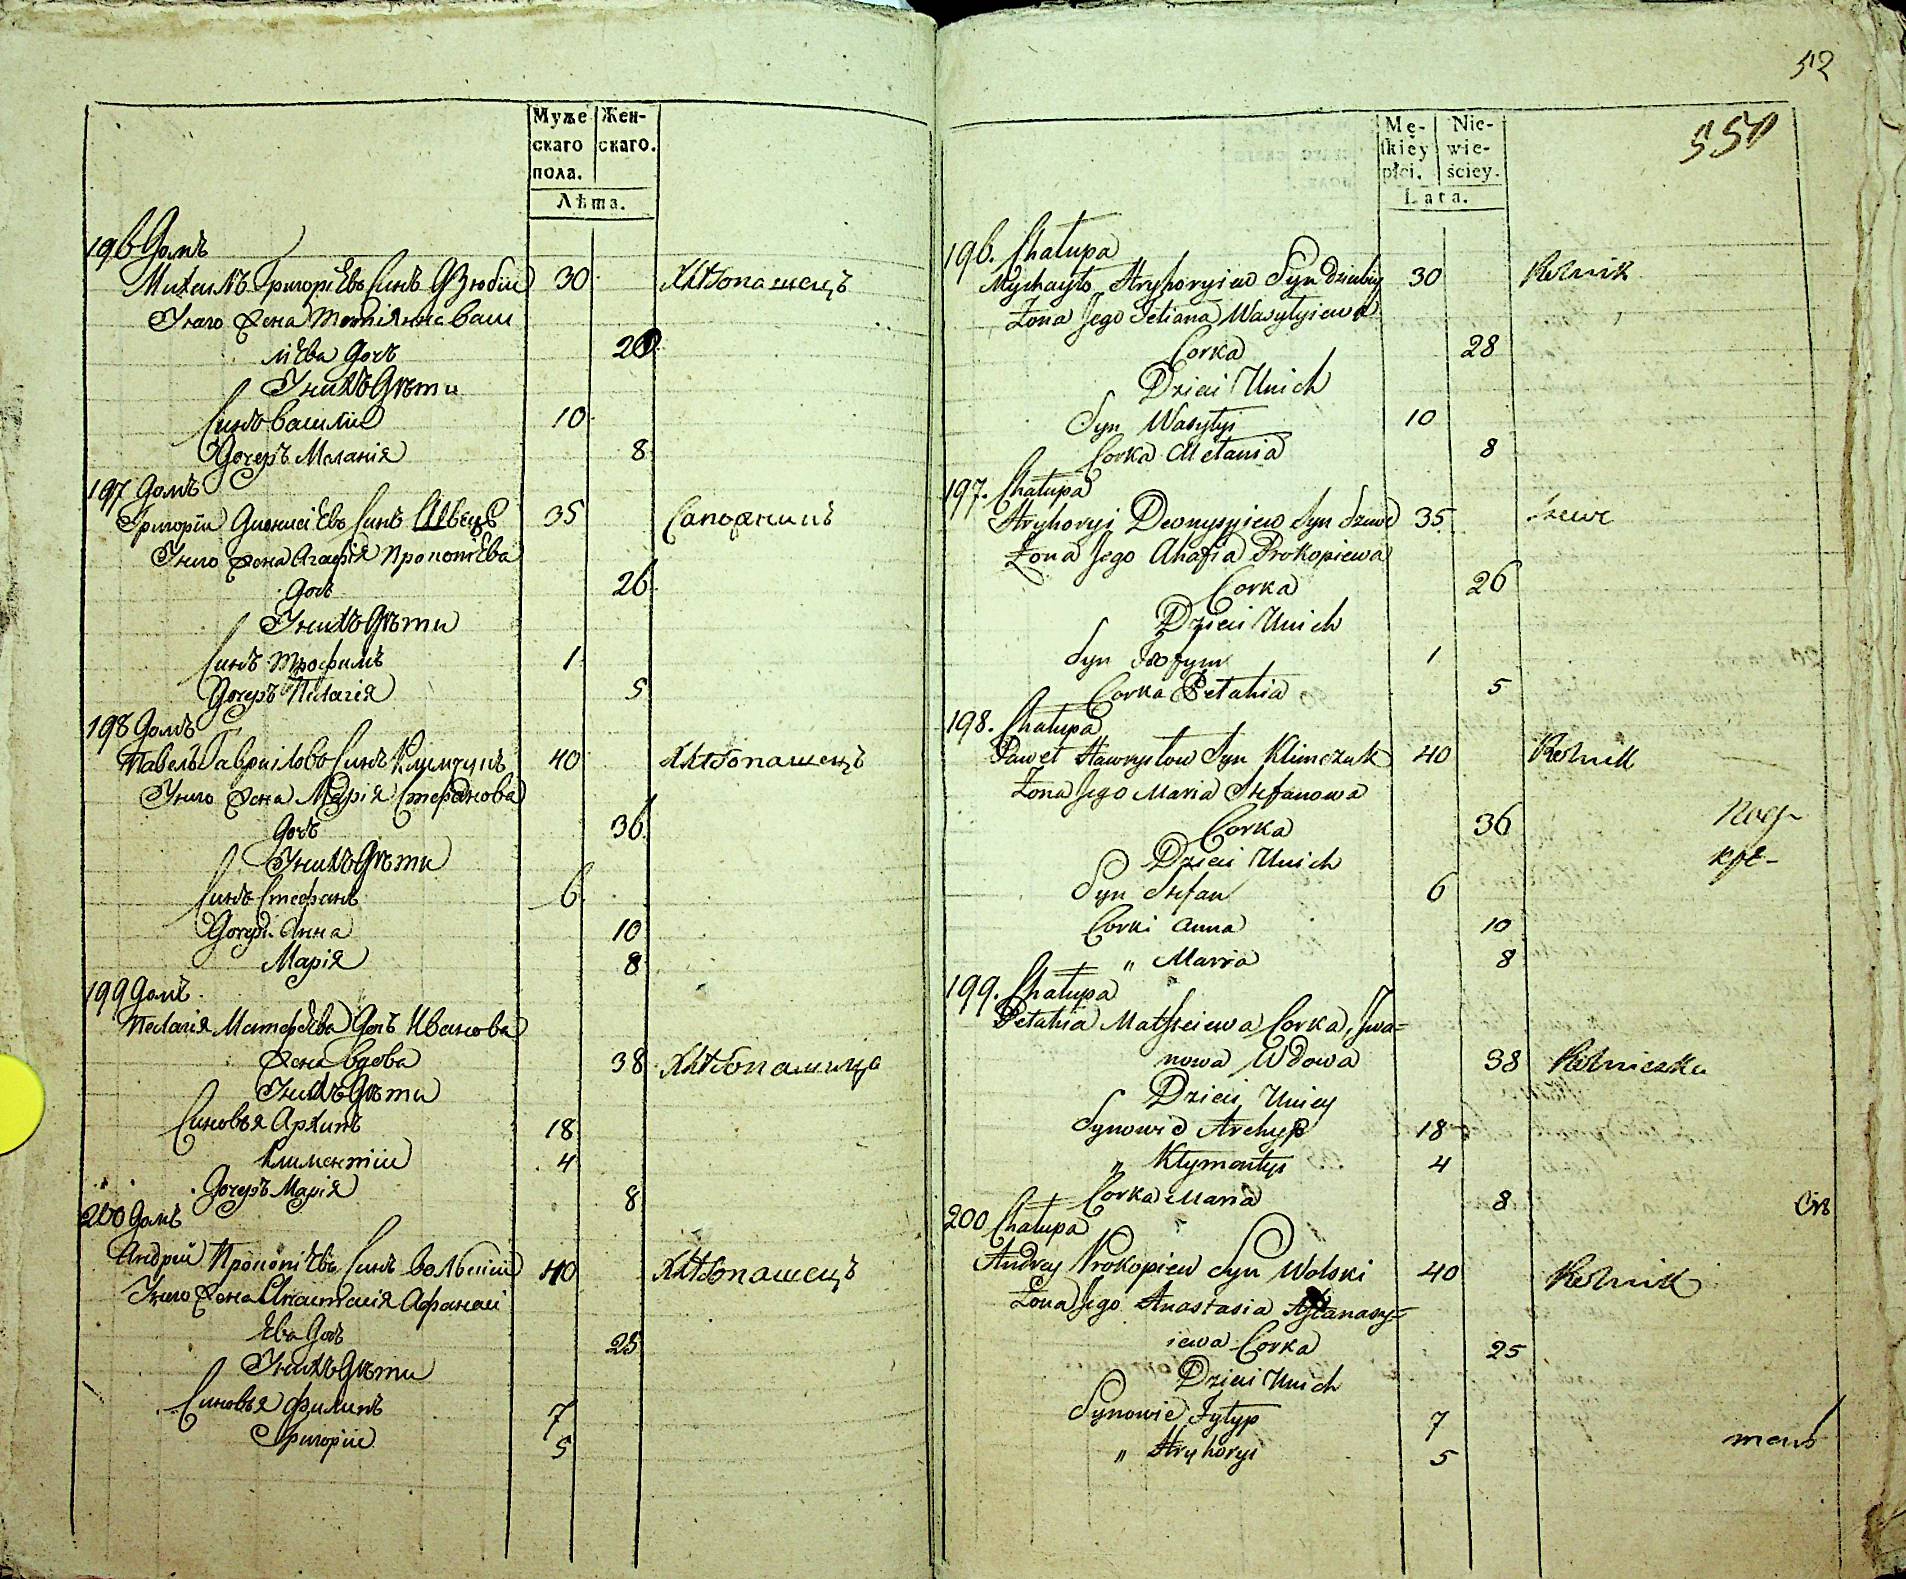 Муже
скаго
пола.
Жен-
скаго.
Лѣта.
196 Домъ
Михаилъ Григоріевъ Синъ Дзюбій 30 Хлѣбопашецъ
У него Жена Тетіянна Васи
лѣева Дочь 28
У нихъ Дѣти
Синъ Василій 10
Дочеръ Меланія 8
197 Домъ
Григорій Діонисіевъ Синъ Швецъ 35 Сапожникъ
У него Жена Агафія Прокопіева
Дочь 26
У нихъ Дѣти
Синъ Трофимъ 1
Дочеръ Пелагія 5
198 Домъ
Павелъ Гавріиловъ Синъ Климчукъ 40 Хлѣбопашецъ
У него Жена Марія Стефанова
Дочь 36
У нихъ Дѣти
Синъ Стефанъ 6
Дочери Анна 10
Марія 8
199 Домъ
Пелагія Матфѣева Дочь Иванова
Жена Вдова 38 Хлѣбопашица
У нихъ Дѣти
Синовья Архипъ 18
Климентій 4
Дочеръ Марія 8
200 Домъ
Андрей Прокопіевъ Синъ Вольскій 40 Хлѣбопашецъ
У него Жена Анастасія Афанасі
ева Дочь 25
У нихъ Дѣти
Синовья Филипъ 7
Григорій 5
52
551
Mę-
skiey
płci.
Nie-
wie-
ściey.
Lata.
196. Chałupa
Mychayło Hryhoryiew Syn Dziubiy 30 Rolnik
Żona Jego Tetiana Wasylyiewa
Corka 28
Dzieci Unich
Syn Wasylyi 10
Corka Mełania 8
197. Chałupa
Hryhoryi Deonysyiew Syn Szwec 35 Szewc
Żona Jego Ahafia Prokopiewa
Corka 26
Dzieci Unich
Syn Trofym 1
Corka Pełahia 5
198. Chałupa
Paweł Hawryłow Syn Klimczuk 40 Rolnik
Żona Jego Maria Stefanowa
Corka 36
Dzieci Unich
Syn Stefan 6
Corki Anna 10
„ Maria 8
199. Chałupa
Pełahia Matfieiewa Corka, Iwa=
nowa Wdowa 38 Rolniczka
Dzieci Uniey
Synowie Archyp 18
„ Kłymentyi 4
Corka Maria 8
200 Chałupa
Andrey Prokopiew Syn Wolski 40 Rolnik
Żona Jego Anastasia Afanasy=
iewa Corka 25
Dzieci Unich
Synowie Fyłyp 7
„ Hryhoryi 5